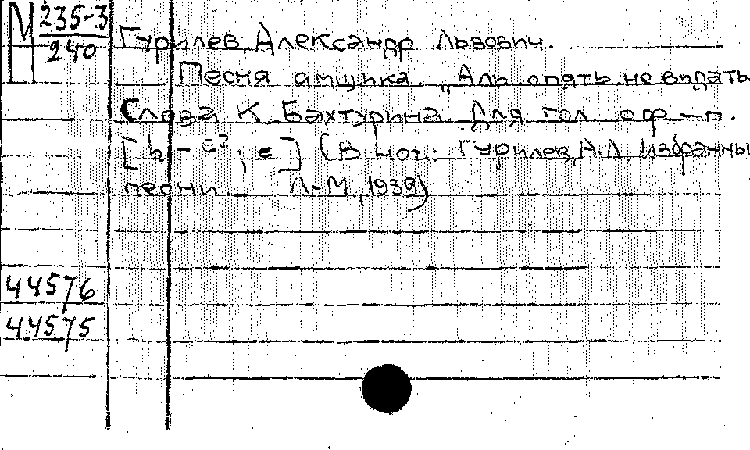 М 235-3
240
Гурилев Александр Львович.
Песня ямщика. "Аль опять не видать
Слова К. Бахтурина. Для гол. с ф-п.
[h - e²; e] (В нот.: Гурилев, А.Л. Избранны
песни. Л-М, 1938)
44576
44575